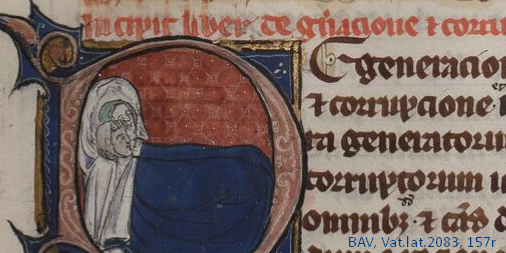 Incipit liber de gn̄acione ⁊ corru
De generacion
⁊ corrupcione
ra generatoru
corruptorum i
omnibꝫ ⁊ cās d
BAV, Vat.lat.2083, 157r